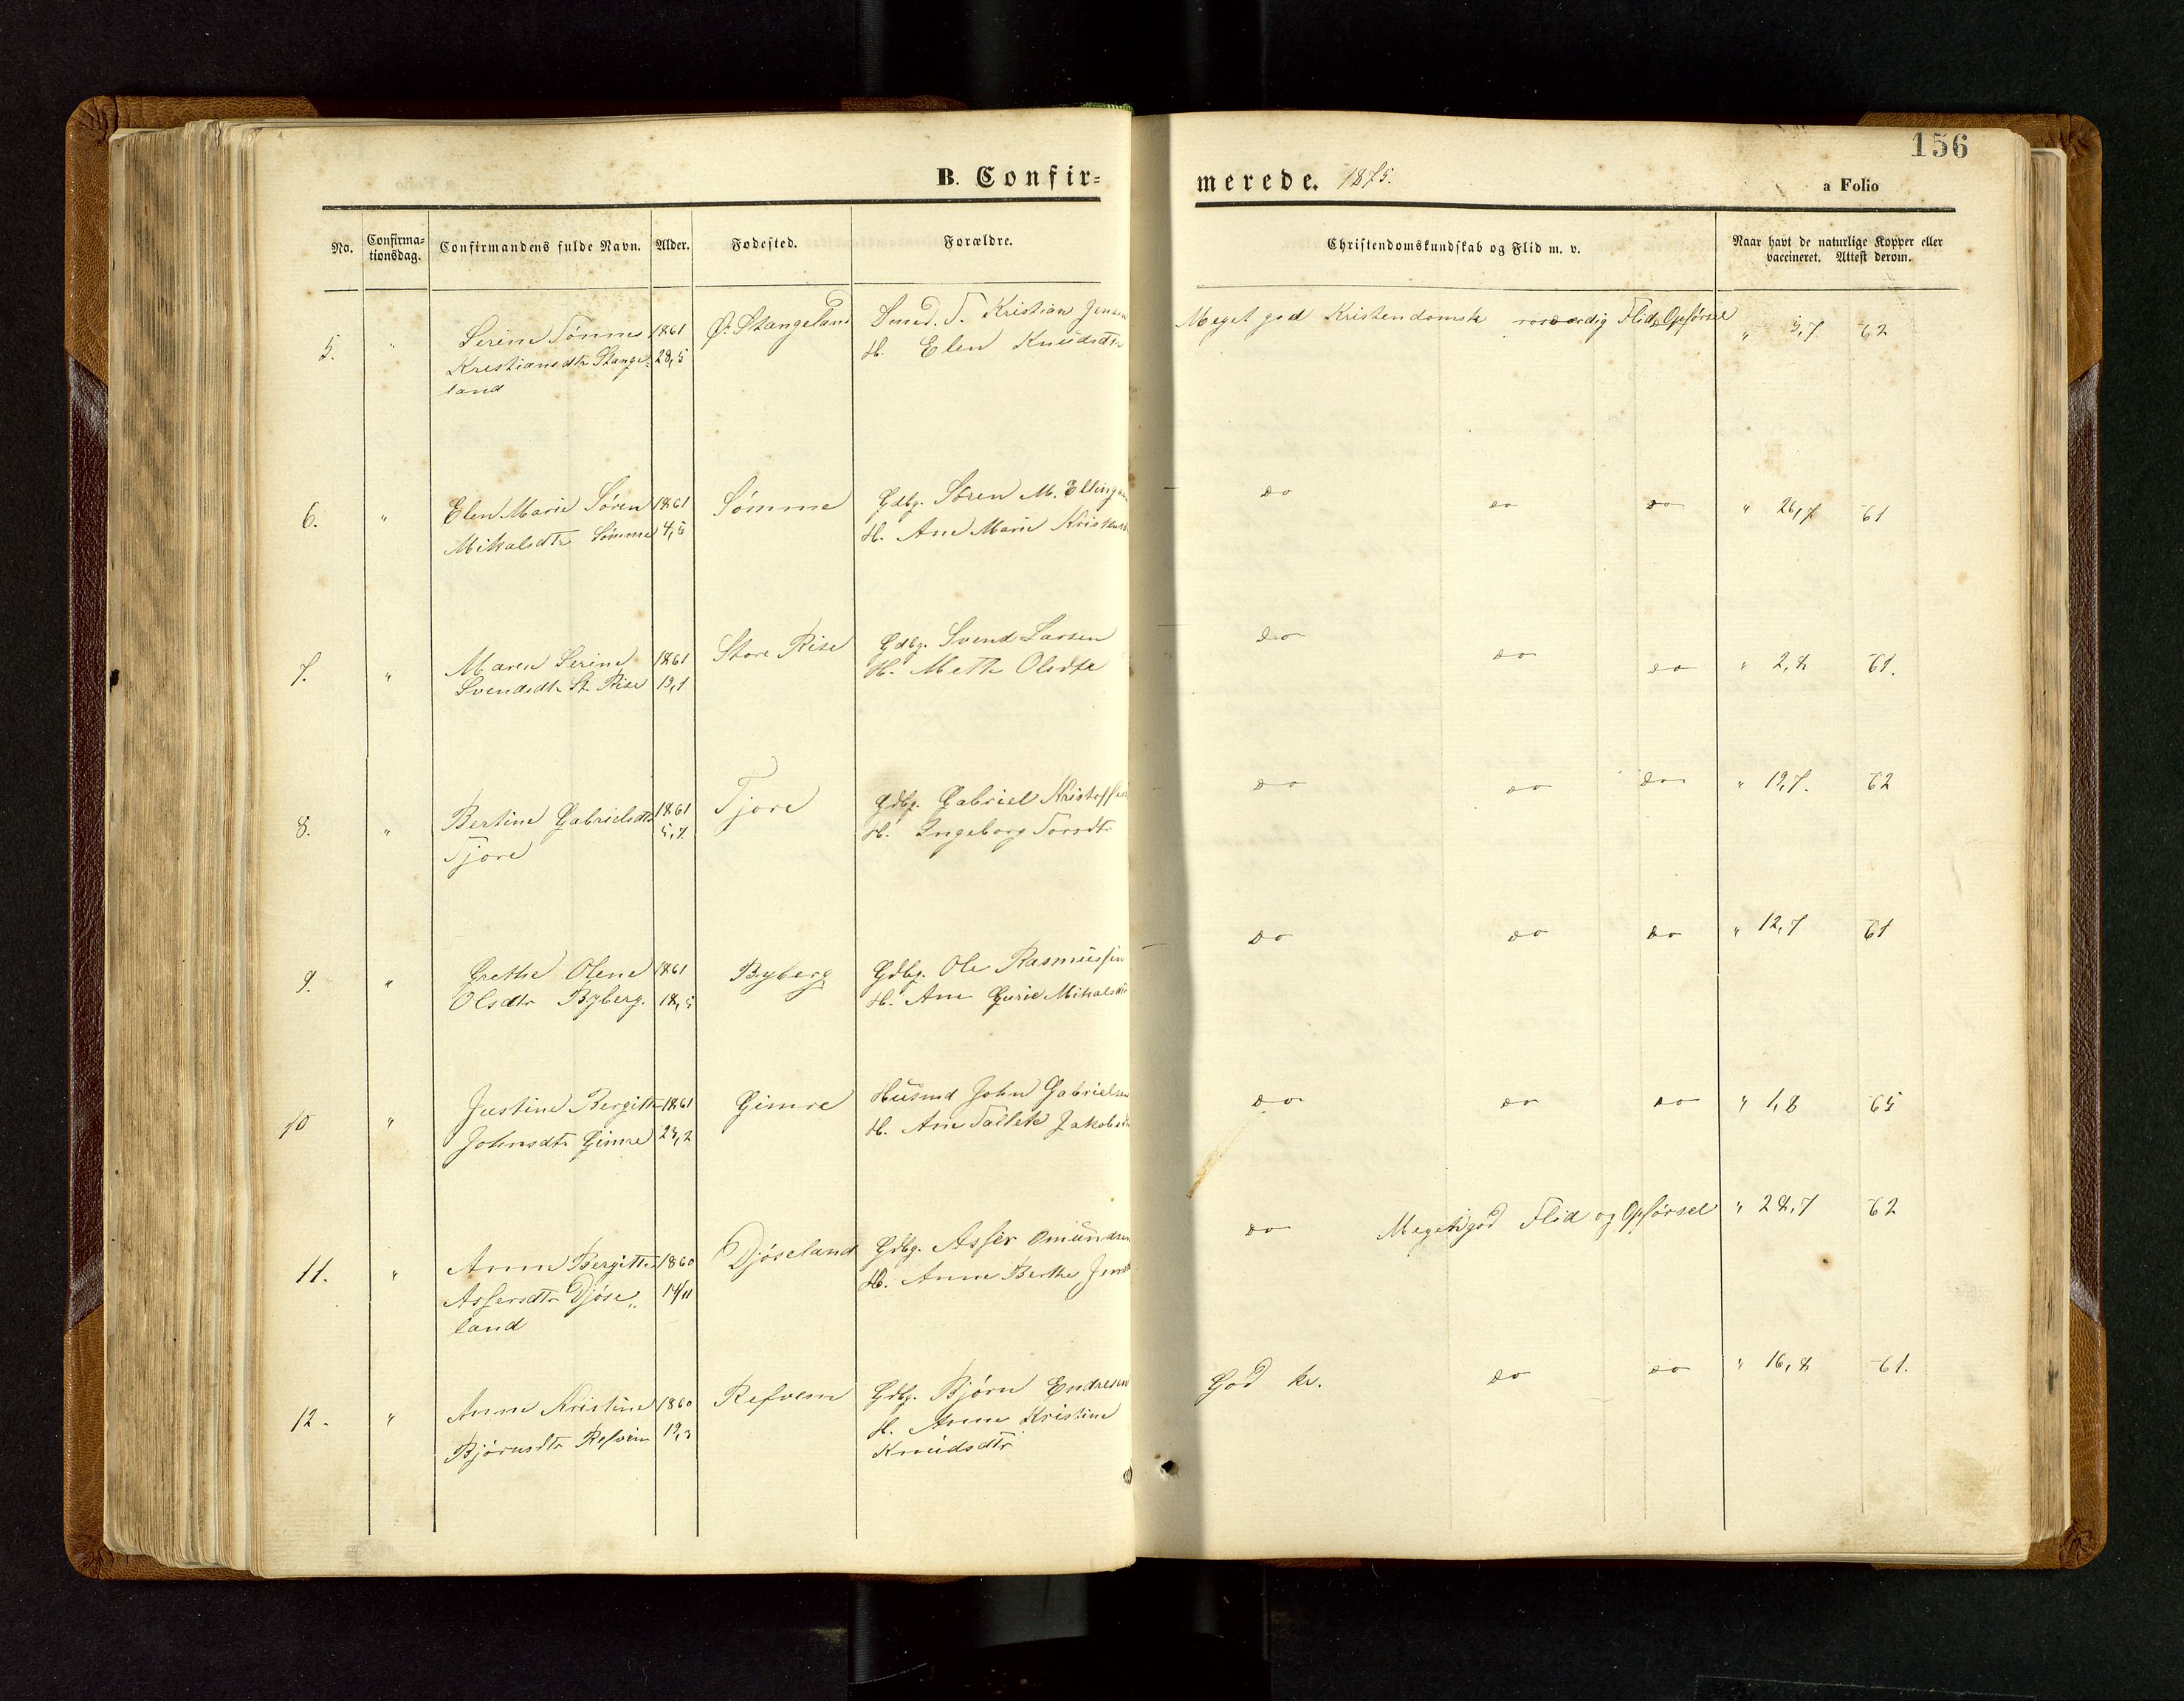 156
B. Confir=
merede. 1875.
a Folio
No.
Confirma=
tionsdag.
Confirmandens fulde Navn.
Alder.
Fødested.
Forældre.
Christendomskundskab og Flid m. v.
Naar havt de naturlige Kopper eller
vaccineret. Attest derom.
5. " Serine Tønnes 1861 Ø. Stangeland Smed. T. Kristian Jensen Meget god Kristendomsk rosværdig Flid, Opførsel " 3,7 62
Kristiansdtr Stange= 28,5 H. Elen Knudsdtr
land
6. " Elen Marie Søren 1861 Sømme Gdbg. Søren M. Ellingsen do do do " 26,7 61
Mikalsdtr Sømme 4,5 H. Ane Marie Kristensd
7. " Maren Serine 1861 Store Rise Gdbg. Svend Larsen do do do " 2,8 61.
Svendsdtr St. Rise 13,1 H. Mette Olsdtr
8. " Bertine Gabrielsdtr 1861 Tjore Gdbg. Gabriel Kristoffers do do do " 19,7. 62
Tjore 5,7. H. Ingeborg Torsdtr
9. " Grethe Olene 1861 Byberg Gdbg. Ole Rasmussen do do do " 12,7 61
Olsdtr Byberg. 18,5 H. Ane Gurie Mikalsdtr
10 " Justine Bergitte 1861 Gimre Husmd John Gabrielsen do do do " 1,8 65
Johnsdtr Gimre 23,2 H. Ane Taletk Jakobsd
11. " Anne Bergitte 1860 Djøseland Gdbg. Asser Omundsen do Meget god Flid og Opførsel " 28,7 62
Assersdtr Djøse„ 14/11 H. Anne Berthe Jensd
land
12. " Anne Kristine 1860 Refvem Gdbg. Bjørn Endresen God kr. do do " 16,8 61.
Bjørnsdtr Refvem 19,3 H. Anne Kristine
Knudsdtr